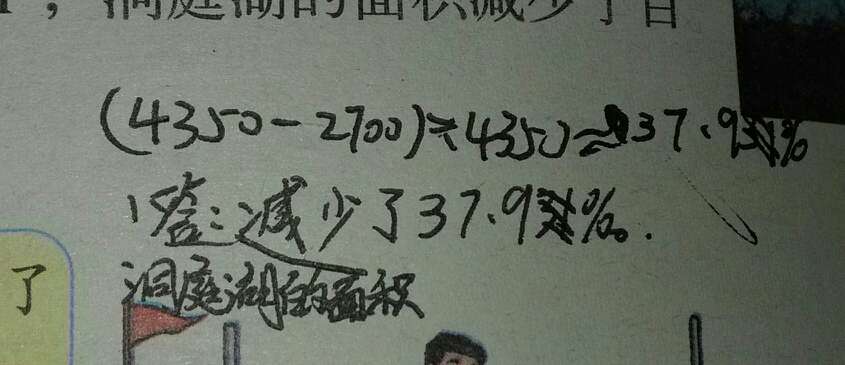 ，洞庭湖的面积减少了百
(4350-2700)÷4350≈37.9%
答：减少了37.9%.
洞庭湖的面积
了